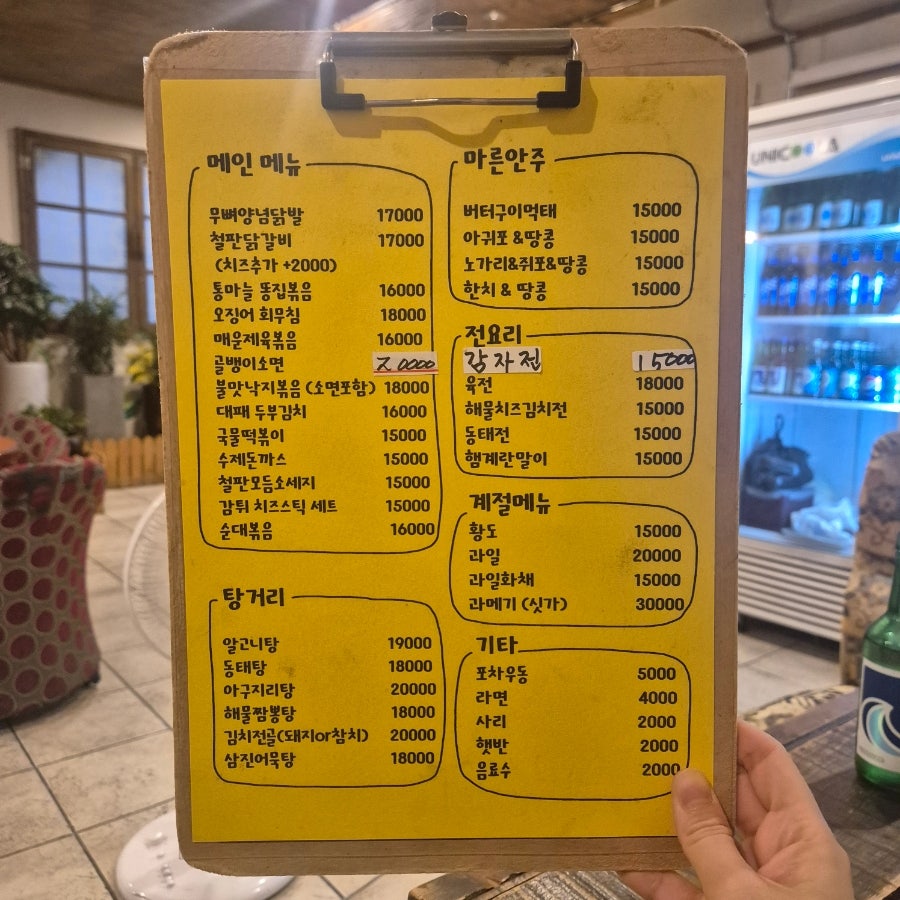 메인 메뉴
무뼈양념닭발 17000
철판닭갈비 17000
(치즈추가 +2000)
통마늘 똥집볶음 16000
오징어 회무침 18000
매운제육볶음 16000
골뱅이소면 20000
불맛낙지볶음 (소면포함) 18000
대패 두부김치 16000
국물떡볶이 15000
수제돈까스 15000
철판모듬소세지 15000
감튀 치즈스틱 세트 15000
순대볶음 16000
탕거리
알고니탕 19000
동태탕 18000
아구지리탕 20000
해물짬뽕탕 18000
김치전골(돼지or참치) 20000
삼진어묵탕 18000
마른안주
버터구이먹태 15000
아귀포 &땅콩 15000
노가리&쥐포&땅콩 15000
한치 & 땅콩 15000
전요리
감자전 15000
육전 18000
해물치즈김치전 15000
동태전 15000
햄계란말이 15000
계절메뉴
황도 15000
과일 20000
과일화채 15000
과메기 (싯가) 30000
기타
포차우동 5000
라면 4000
사리 2000
햇반 2000
음료수 2000